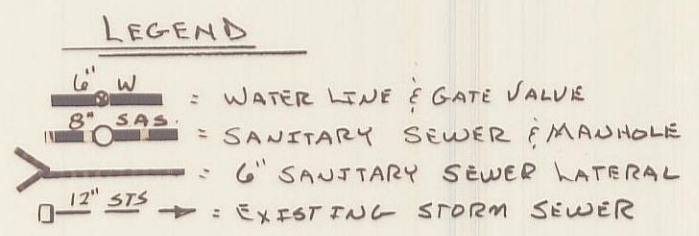 LEGEND
6" W = WATER LINE & GATE VALVE
8" SAS. = SANITARY SEWER & MANHOLE
= 6" SANITARY SEWER LATERAL
12" STS = EXISTING STORM SEWER